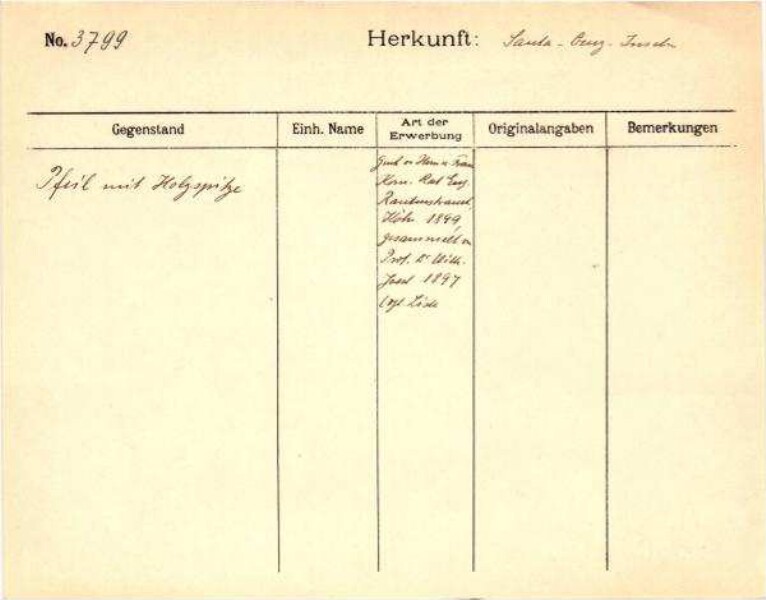 No. 3799 Herkunft: Santa-Cruz-Inseln
Gegenstand Einh. Name Art der Erwerbung Originalangaben Bemerkungen
Pfeil mit Holzspitze
Gesch. v. Herrn u. Frau
Kom. Rat Eug.
Rautenstrauch,
Köln 1899,
gesammelt v.
Prof. Dr. Wilh.
Joest 1897